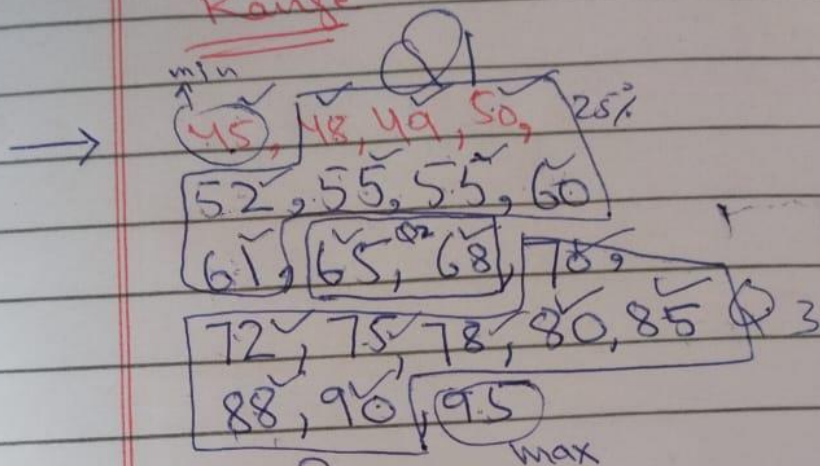 Range
Q1
min
45, 48, 49, 50, 25%
52, 55, 55, 60
61, 65, Q2 68, 70,
72, 75, 78, 80, 85 Q3
88, 90, 95
max